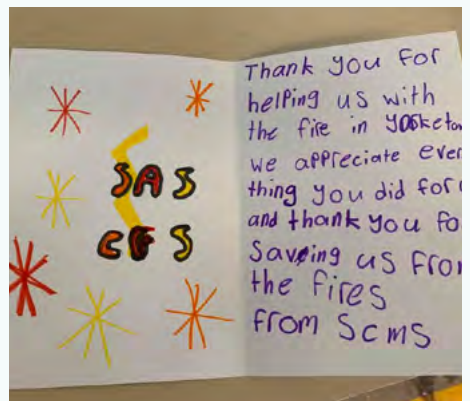 SAS
CFS
Thank you for
helping us with
the fire in Yorketo
we appreciate ever
thing you did for
and thank you fo
Saveing us From
the Fires
From Scms